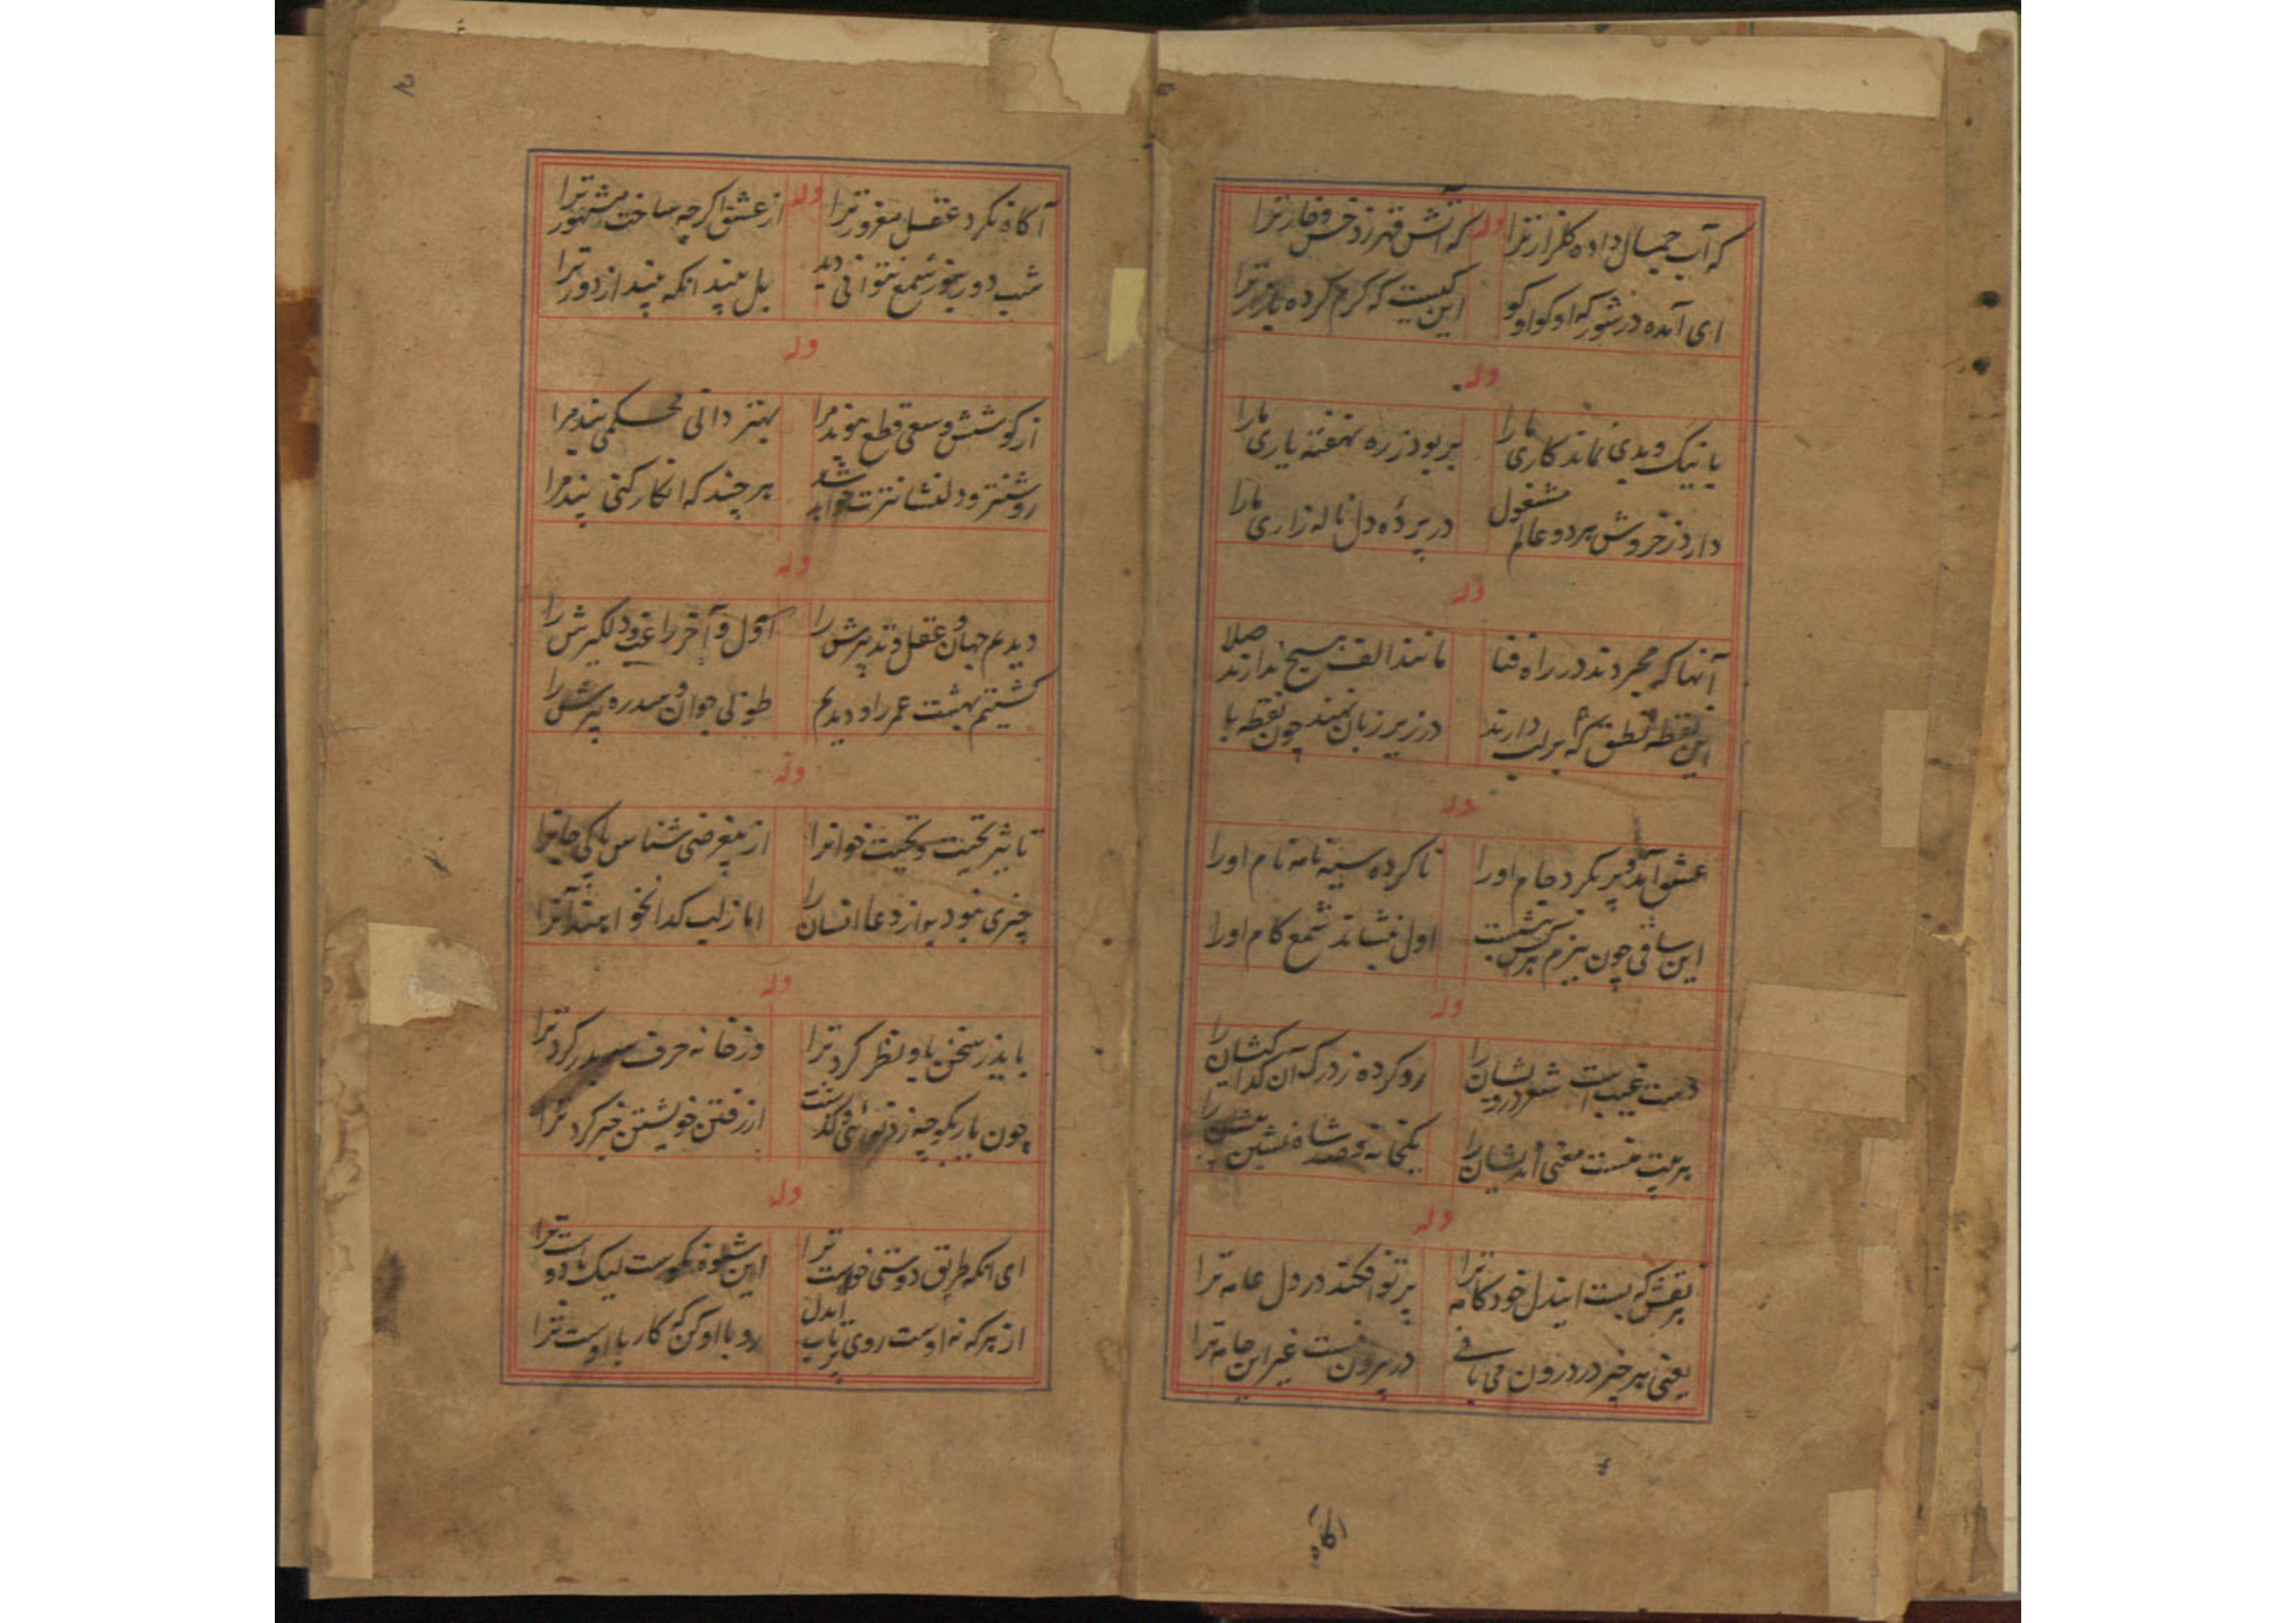 که آب جمال داده گلزار ترا وله که آتش قهر زد خس و خار ترا
ای آمده در شور که او کو او کو این کیست که گرم کرده بازار ترا
وله
با نیک و بدی نماند کاری ما را بربود ز ره نهفته یاری ما را
دارد ز خروش هر دو عالم مشغول در پردهٔ دل ناله زاری ما را
وله
آنها که مجردند در راه فنا مانند الف هیچ ندارند صلا
این نقطه نطق که بر لب دارند در زیر زبان نهند چون نقطه با
وله
عشق آمد و پر نکرد جام او را تا کرده سیه نامه نام او را
این ساقی چون ببزم هرکس بنشست اول بنشاند شمع کام او را
وله
دست غیب است شعر درویشان را رو کرده ز درگه آن کداکیشان را
هر بیت منست معنی اندیشان را یکخانه و صد شاه نشین بیشان را
وله
هر نقش که بست ایندل خودکامه ترا پرتو افکند در دل عامه ترا
یعنی هر چیز در درون می بافی در بیرون نیست غیر این جامه ترا
آکاه
آکاه نکرد عقل مغرور ترا وله از عشق اکرچه ساخت مشهور ترا
شب دور بجز شمع نتوانی دید بل بیند انکه بیند از دور ترا
وله
از کوشش و سعی قطع پیوند مرا بهتر دانی محکمی بند مرا
روشنتر و دلنشانترت خواهد شد هر چند که انکار کنی پند مرا
وله
دیدیم جهان و عقل و تدبیرش را اول و آخر راغب و دلگیرش را
کشتیم بهشت عمر را و دیدیم طوبی جوان و سدره پیرش را
وله
تاثیر تحیت و تحیت خوانرا از بیغرضی شناس پاکی جانرا
چیزی نبود به از دعا انسان را اما ز لب کدا نخواهند آنرا
وله
باید ز سخن باو نظر کرد ترا وز خانه حرف سر بدر کرد ترا
چون یار بکوچه ز تو و گذشت از رفتن خویشتن خبر کرد ترا
وله
ای انکه طریق دوستی خوست ترا این شیوه نکوست لیک با دوست ترا
از هر که نه اوست روی برتاب ایدل رو با او کن که کار با اوست ترا